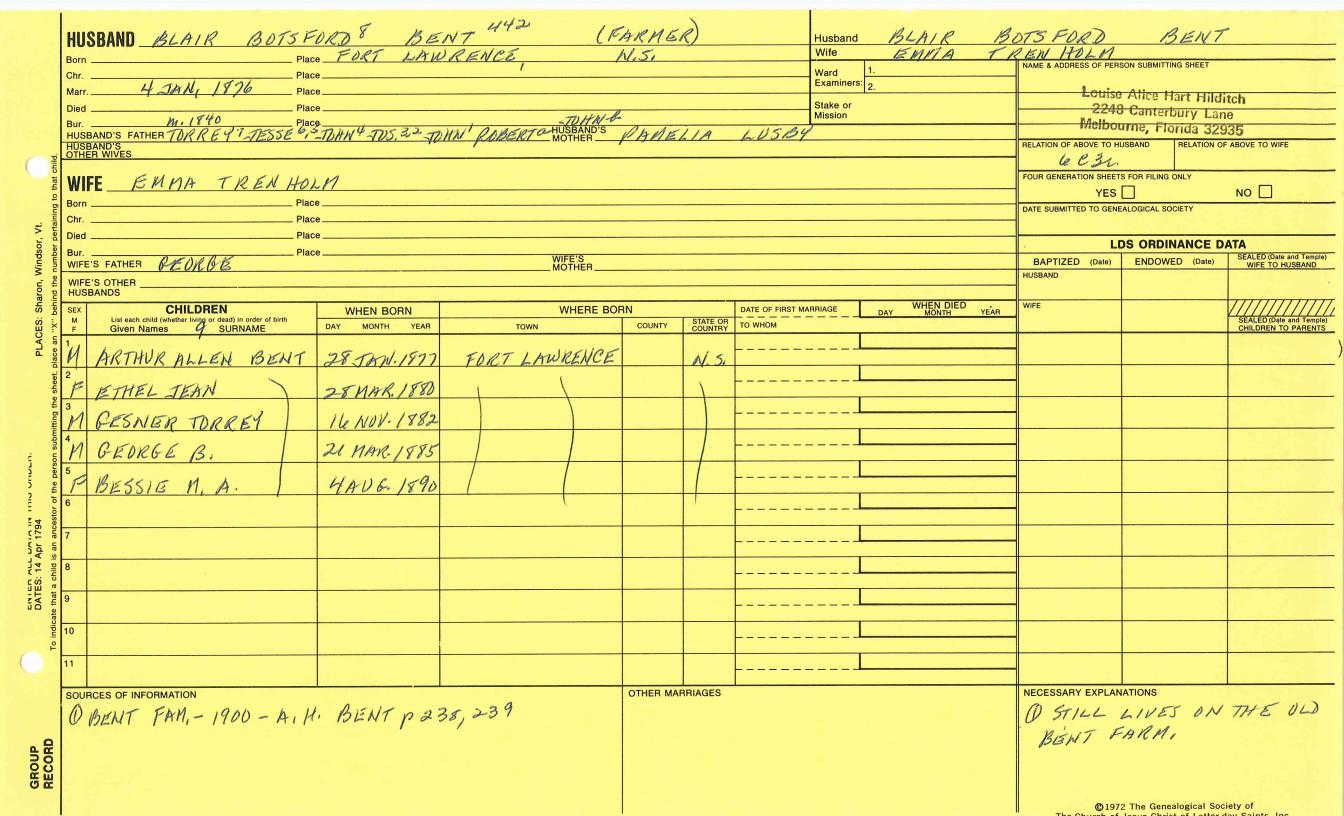 HUSBAND BLAIR BOTSFORD 8 BENT 442 (FARMER)
Born Place FORT LAWRENCE, N.S.
Chr. Place
Marr. 4 JAN, 1876 Place
Died Place
Bur. m. 1840 Place
JOHN-6
HUSBAND'S FATHER TORREY 7, JESSE 6,5 JOHN 4 JOS. 3,2 JOHN 1 ROBERT HUSBAND'S MOTHER PAMELIA LUSBY
HUSBAND'S OTHER WIVES
Husband BLAIR BOTSFORD BENT
Wife EMMA TRENHOLM
Ward Examiners: 1.
2.
Stake or Mission
NAME & ADDRESS OF PERSON SUBMITTING SHEET
Louise Alice Hart Hilditch
2248 Canterbury Lane
Melbourne, Florida 32935
RELATION OF ABOVE TO HUSBAND RELATION OF ABOVE TO WIFE
6C3r
FOUR GENERATION SHEETS FOR FILING ONLY
YES NO
DATE SUBMITTED TO GENEALOGICAL SOCIETY
WIFE EMMA TRENHOLM
Born Place
Chr. Place
Died Place
Bur. Place
WIFE'S FATHER GEORGE WIFE'S MOTHER
WIFE'S OTHER HUSBANDS
LDS ORDINANCE DATA
BAPTIZED (Date) ENDOWED (Date) SEALED (Date and Temple) WIFE TO HUSBAND
HUSBAND
WIFE
SEALED (Date and Temple) CHILDREN TO PARENTS
SEX M F CHILDREN WHEN BORN WHERE BORN DATE OF FIRST MARRIAGE WHEN DIED
List each child (whether living or dead) in order of birth
Given Names 9 SURNAME DAY MONTH YEAR TOWN COUNTY STATE OR COUNTRY TO WHOM DAY MONTH YEAR
1 M ARTHUR ALLEN BENT 28 JAN. 1877 FORT LAWRENCE N.S.
2 F ETHEL JEAN 28 MAR. 1880
3 M GESNER TORREY 16 NOV. 1882
4 M GEORGE B. 21 MAR. 1885
5 F BESSIE M. A. 4 AUG. 1890
6
7
8
9
10
11
SOURCES OF INFORMATION
① BENT FAM. - 1900 - A. H. BENT p 238, 239
OTHER MARRIAGES
NECESSARY EXPLANATIONS
① STILL LIVES ON THE OLD
BENT FARM.
©1972 The Genealogical Society of
The Church of Jesus Christ of Latter-day Saints, Inc.
PLACES: Sharon, Windsor, Vt.
ENTER ALL DATA IN THIS ORDER:
DATES: 14 Apr 1794
To indicate that a child is an ancestor of the person submitting the sheet, place an "X" behind the number pertaining to that child.
GROUP
RECORD